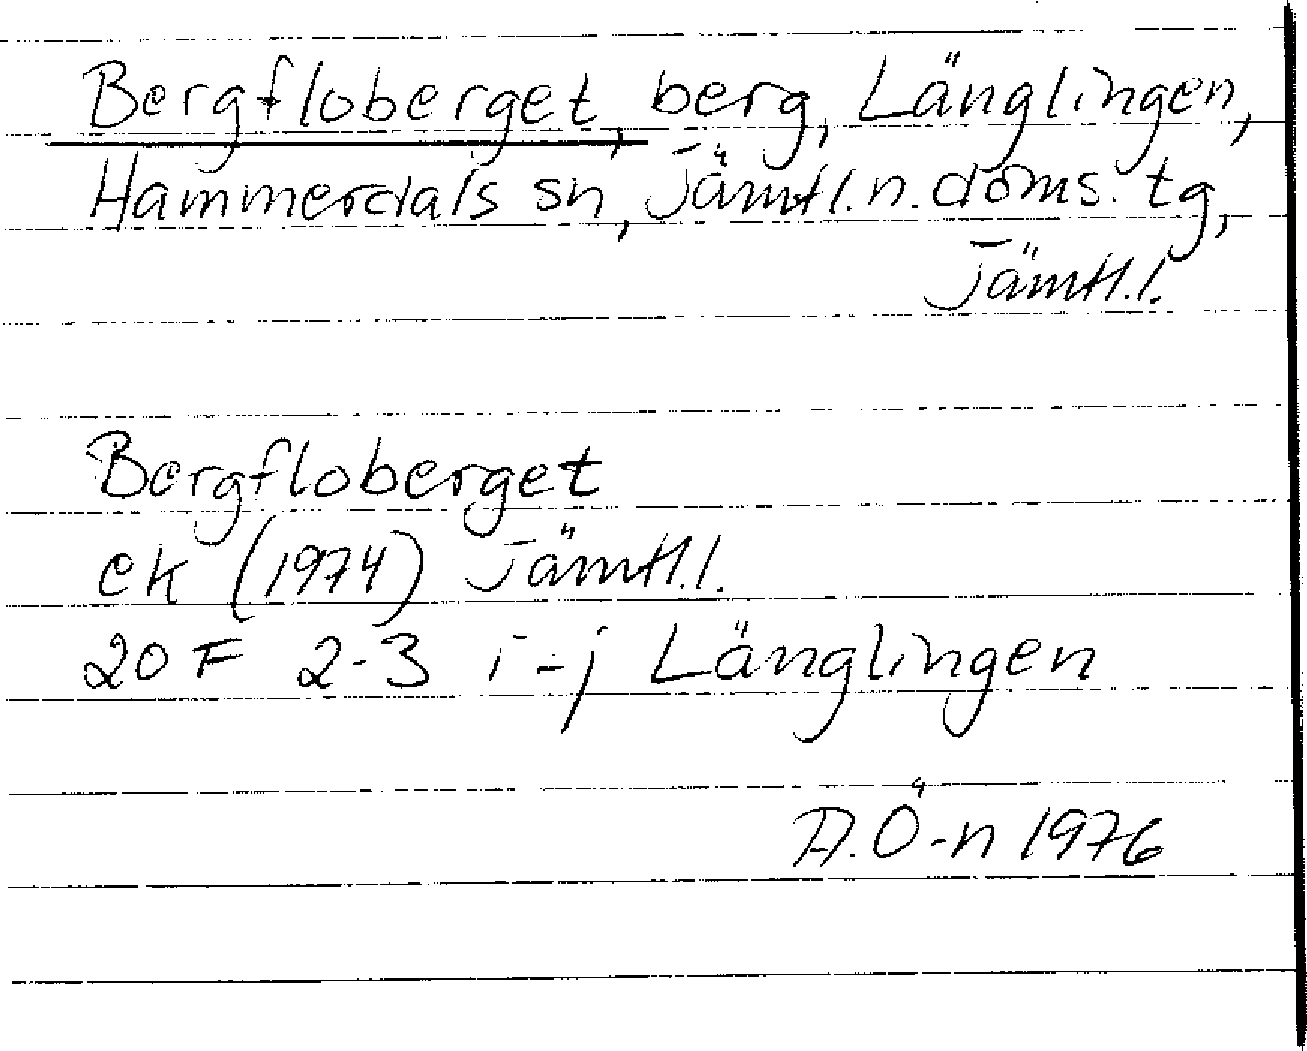 Bergfloberget, berg, Länglingen,
Hammerdals sn, Jämtl.n.doms.tg,
Jämtl.l.
Bergfloberget
ek (1974) Jämtl.l.
20 F 2-3 i-j Länglingen
A.Ö-n 1976